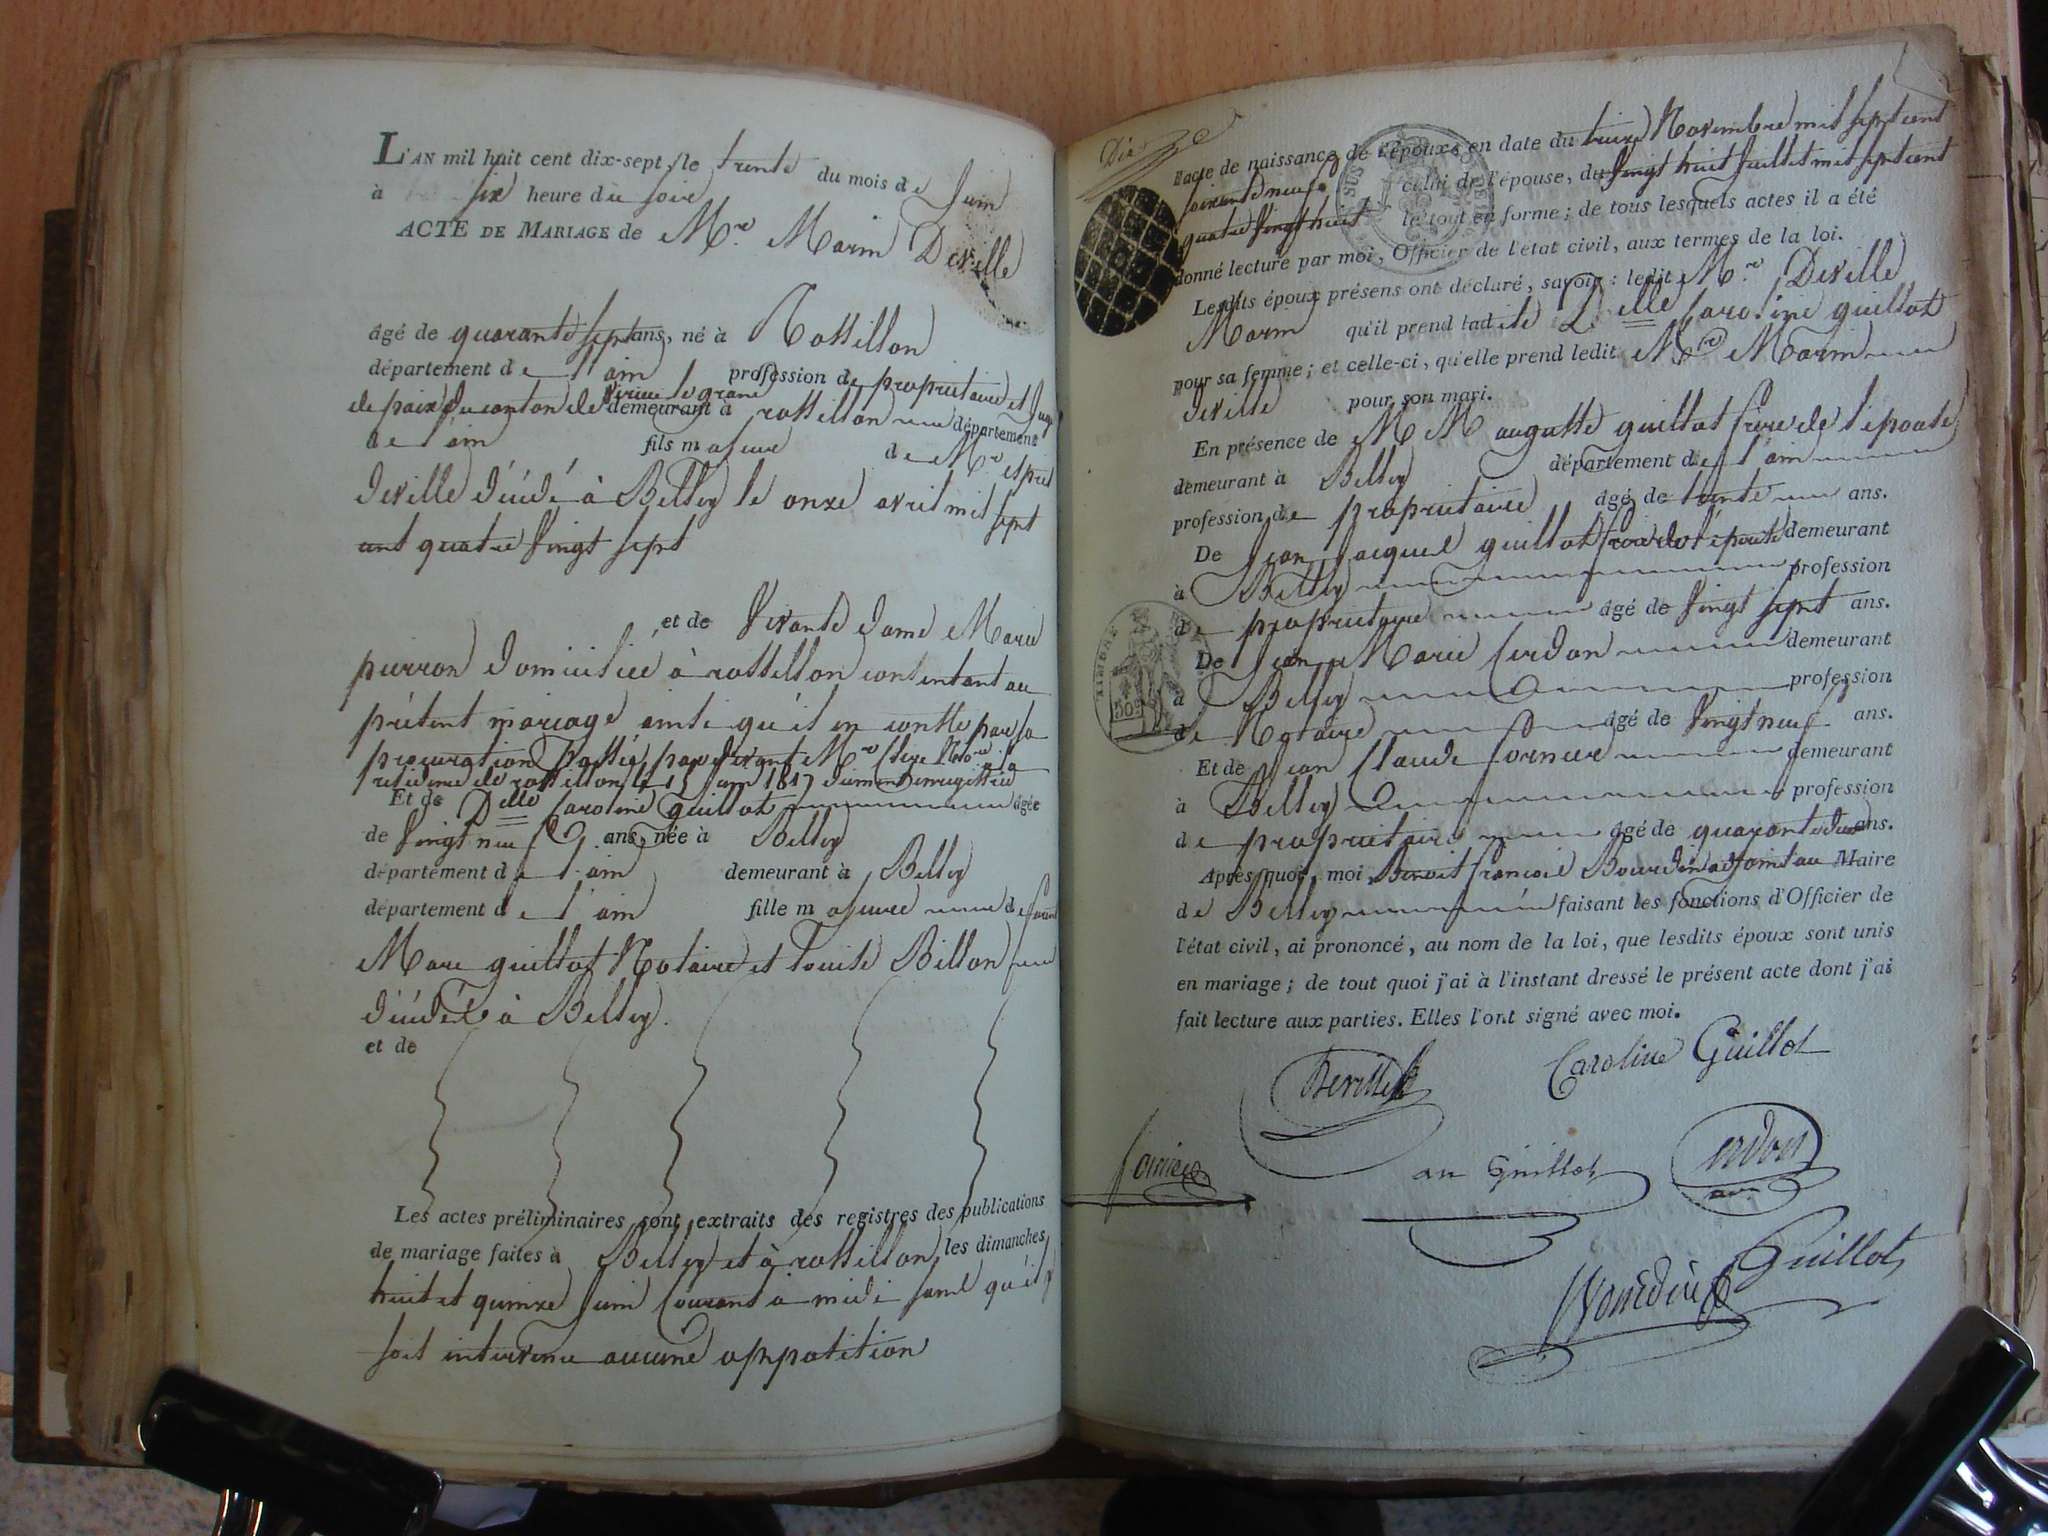 L'AN mil huit cent dix-sept, le trente du mois de Juin
à six heure du soir
ACTE DE MARIAGE de Mr. Marin Deville
âgé de quarante sept ans, né à Rossillon
département de l'ain profession de proprietaire et Juge
de paix du canton de Virieu le grand demeurant à rossillon département
de l'ain fils majeur de Mr esprit
deville décédé à Belley le onze avril mil sept
cent quatre vingt sept
et de vivante dame Marie
perron domiciliée à rossillon consentant au
présent mariage ainsi qu'il en conste par sa
procuration passée par devant Mre Nore à la
residence de rossillon le 15 Juin 1817 dument enregistrée
Et de Delle Caroline guillot âgée
de vingt neuf ans, née à Belley
département de l'ain demeurant à Belley
département de l'ain fille majeure de
Marc guillot Notaire et Louise Billon
décédés à Belley.
et de
Les actes préliminaires sont extraits des registres des publications
de mariage faites à Belley et à rossillon les dimanches
huit et quinze Juin Courant à midi sans qu'il y
soit intervenu aucune opposition
l'acte de naissance de l'époux en date du treize Novembre mil sept cent
soixante neuf celui de l'épouse, du vingt huit Juillet mil sept cent
quatre vingt huit le tout en forme; de tous lesquels actes il a été
donné lecture par moi, Officier de l'état civil, aux termes de la loi.
Lesdits époux présens ont déclaré, savoir: ledit Mr. Deville
Marin qu'il prend ladite Delle Caroline guillot
pour sa femme; et celle-ci, qu'elle prend ledit Mr Marin
deville pour son mari.
En présence de M M auguste guillot frere de l'epouse
demeurant à Belley département de l'ain
profession de proprietaire âgé de trente ans.
De Jean Jacques guillot frere de l'épouse demeurant
à Belley profession
de proprietaire âgé de vingt sept ans.
De Jean Marie Cerdon demeurant
à Belley profession
de Notaire âgé de vingt neuf ans.
Et de Jean Claude Fornier demeurant
à Belley profession
de proprietaire âgé de quarante deux ans.
Après quoi, moi Benoit françois Bourdin adjoint au Maire
de Belley faisant les fonctions d'Officier de
l'état civil, ai prononcé, au nom de la loi, que lesdits époux sont unis
en mariage; de tout quoi j'ai à l'instant dressé le présent acte dont j'ai
fait lecture aux parties. Elles l'ont signé avec moi.
Deville
Caroline Guillot
au Guillot
Guillot
TIMBRE